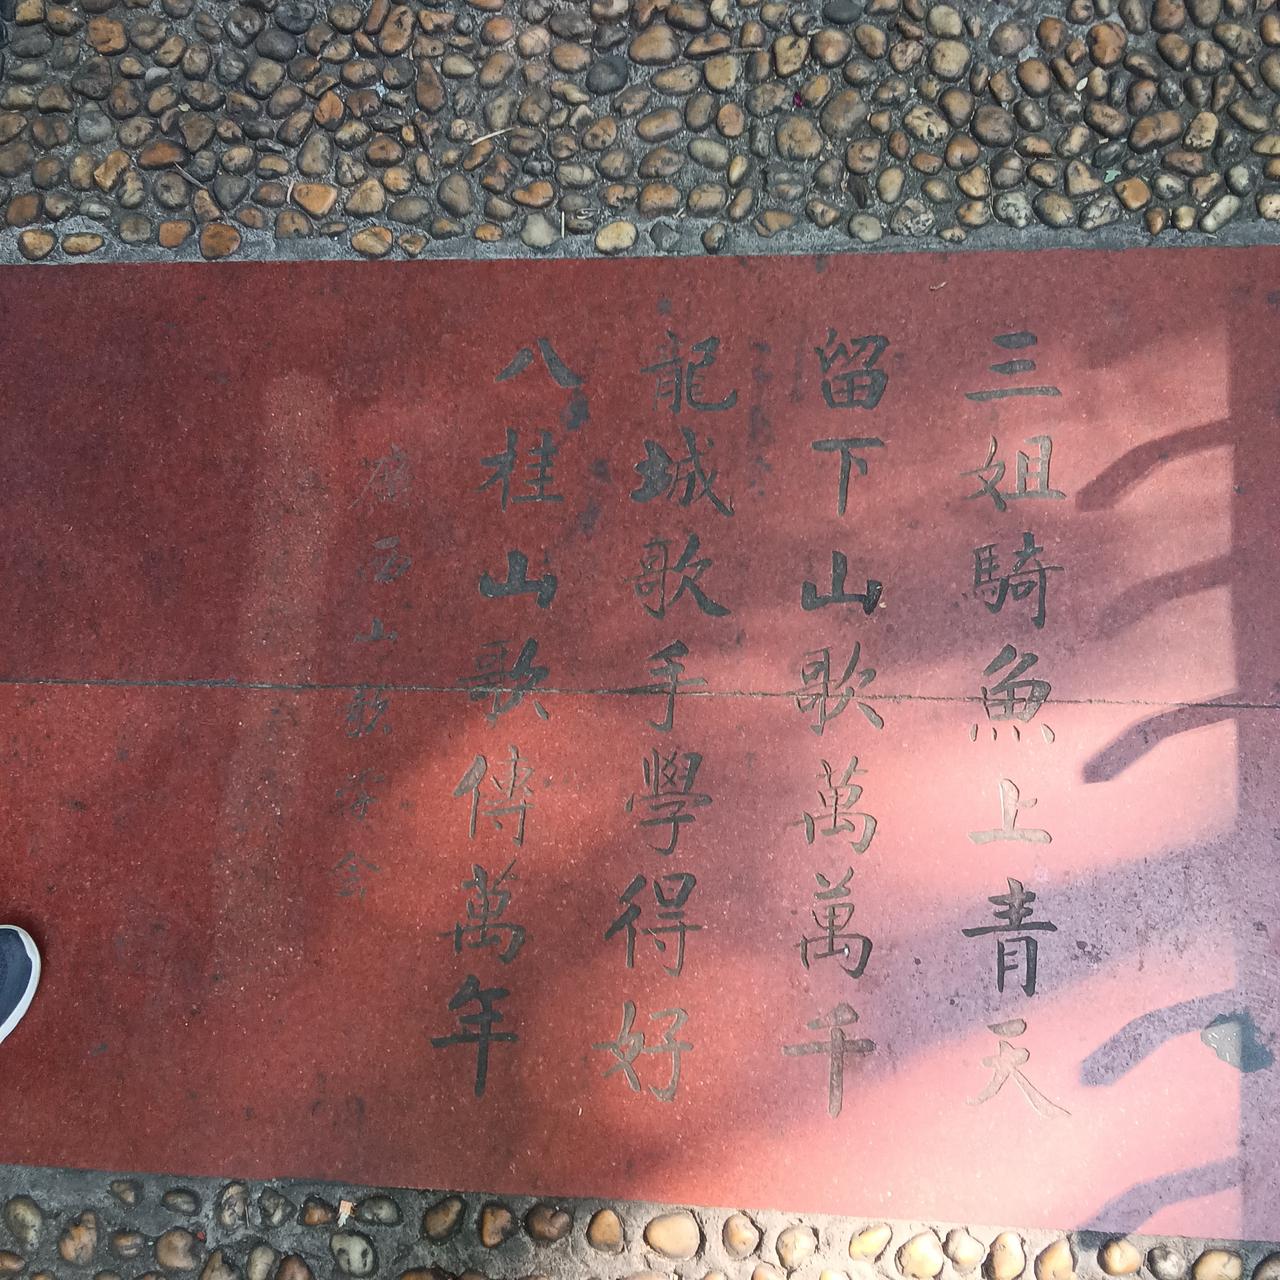 三姐騎魚上青天
留下山歌萬萬千
龍城歌手學得好
八桂山歌傳萬年
廣西山歌学会